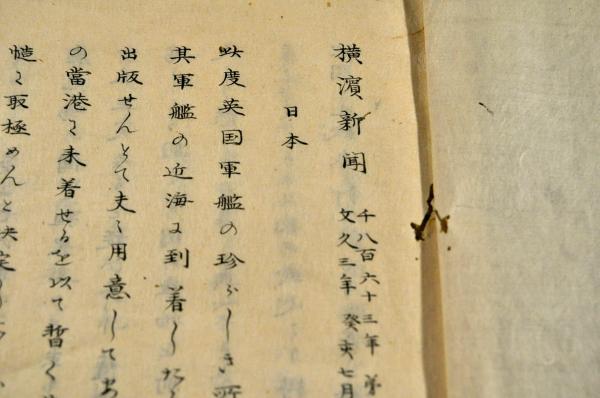 横濱新聞
千八百六十三年
文久三年癸亥七月
日本
此度英国軍艦の珍らしき
其軍艦の近海に到着したる
出版せんとて夫々用意して
の當港に未着せるを以て暫く
慥に取極めんと決定し